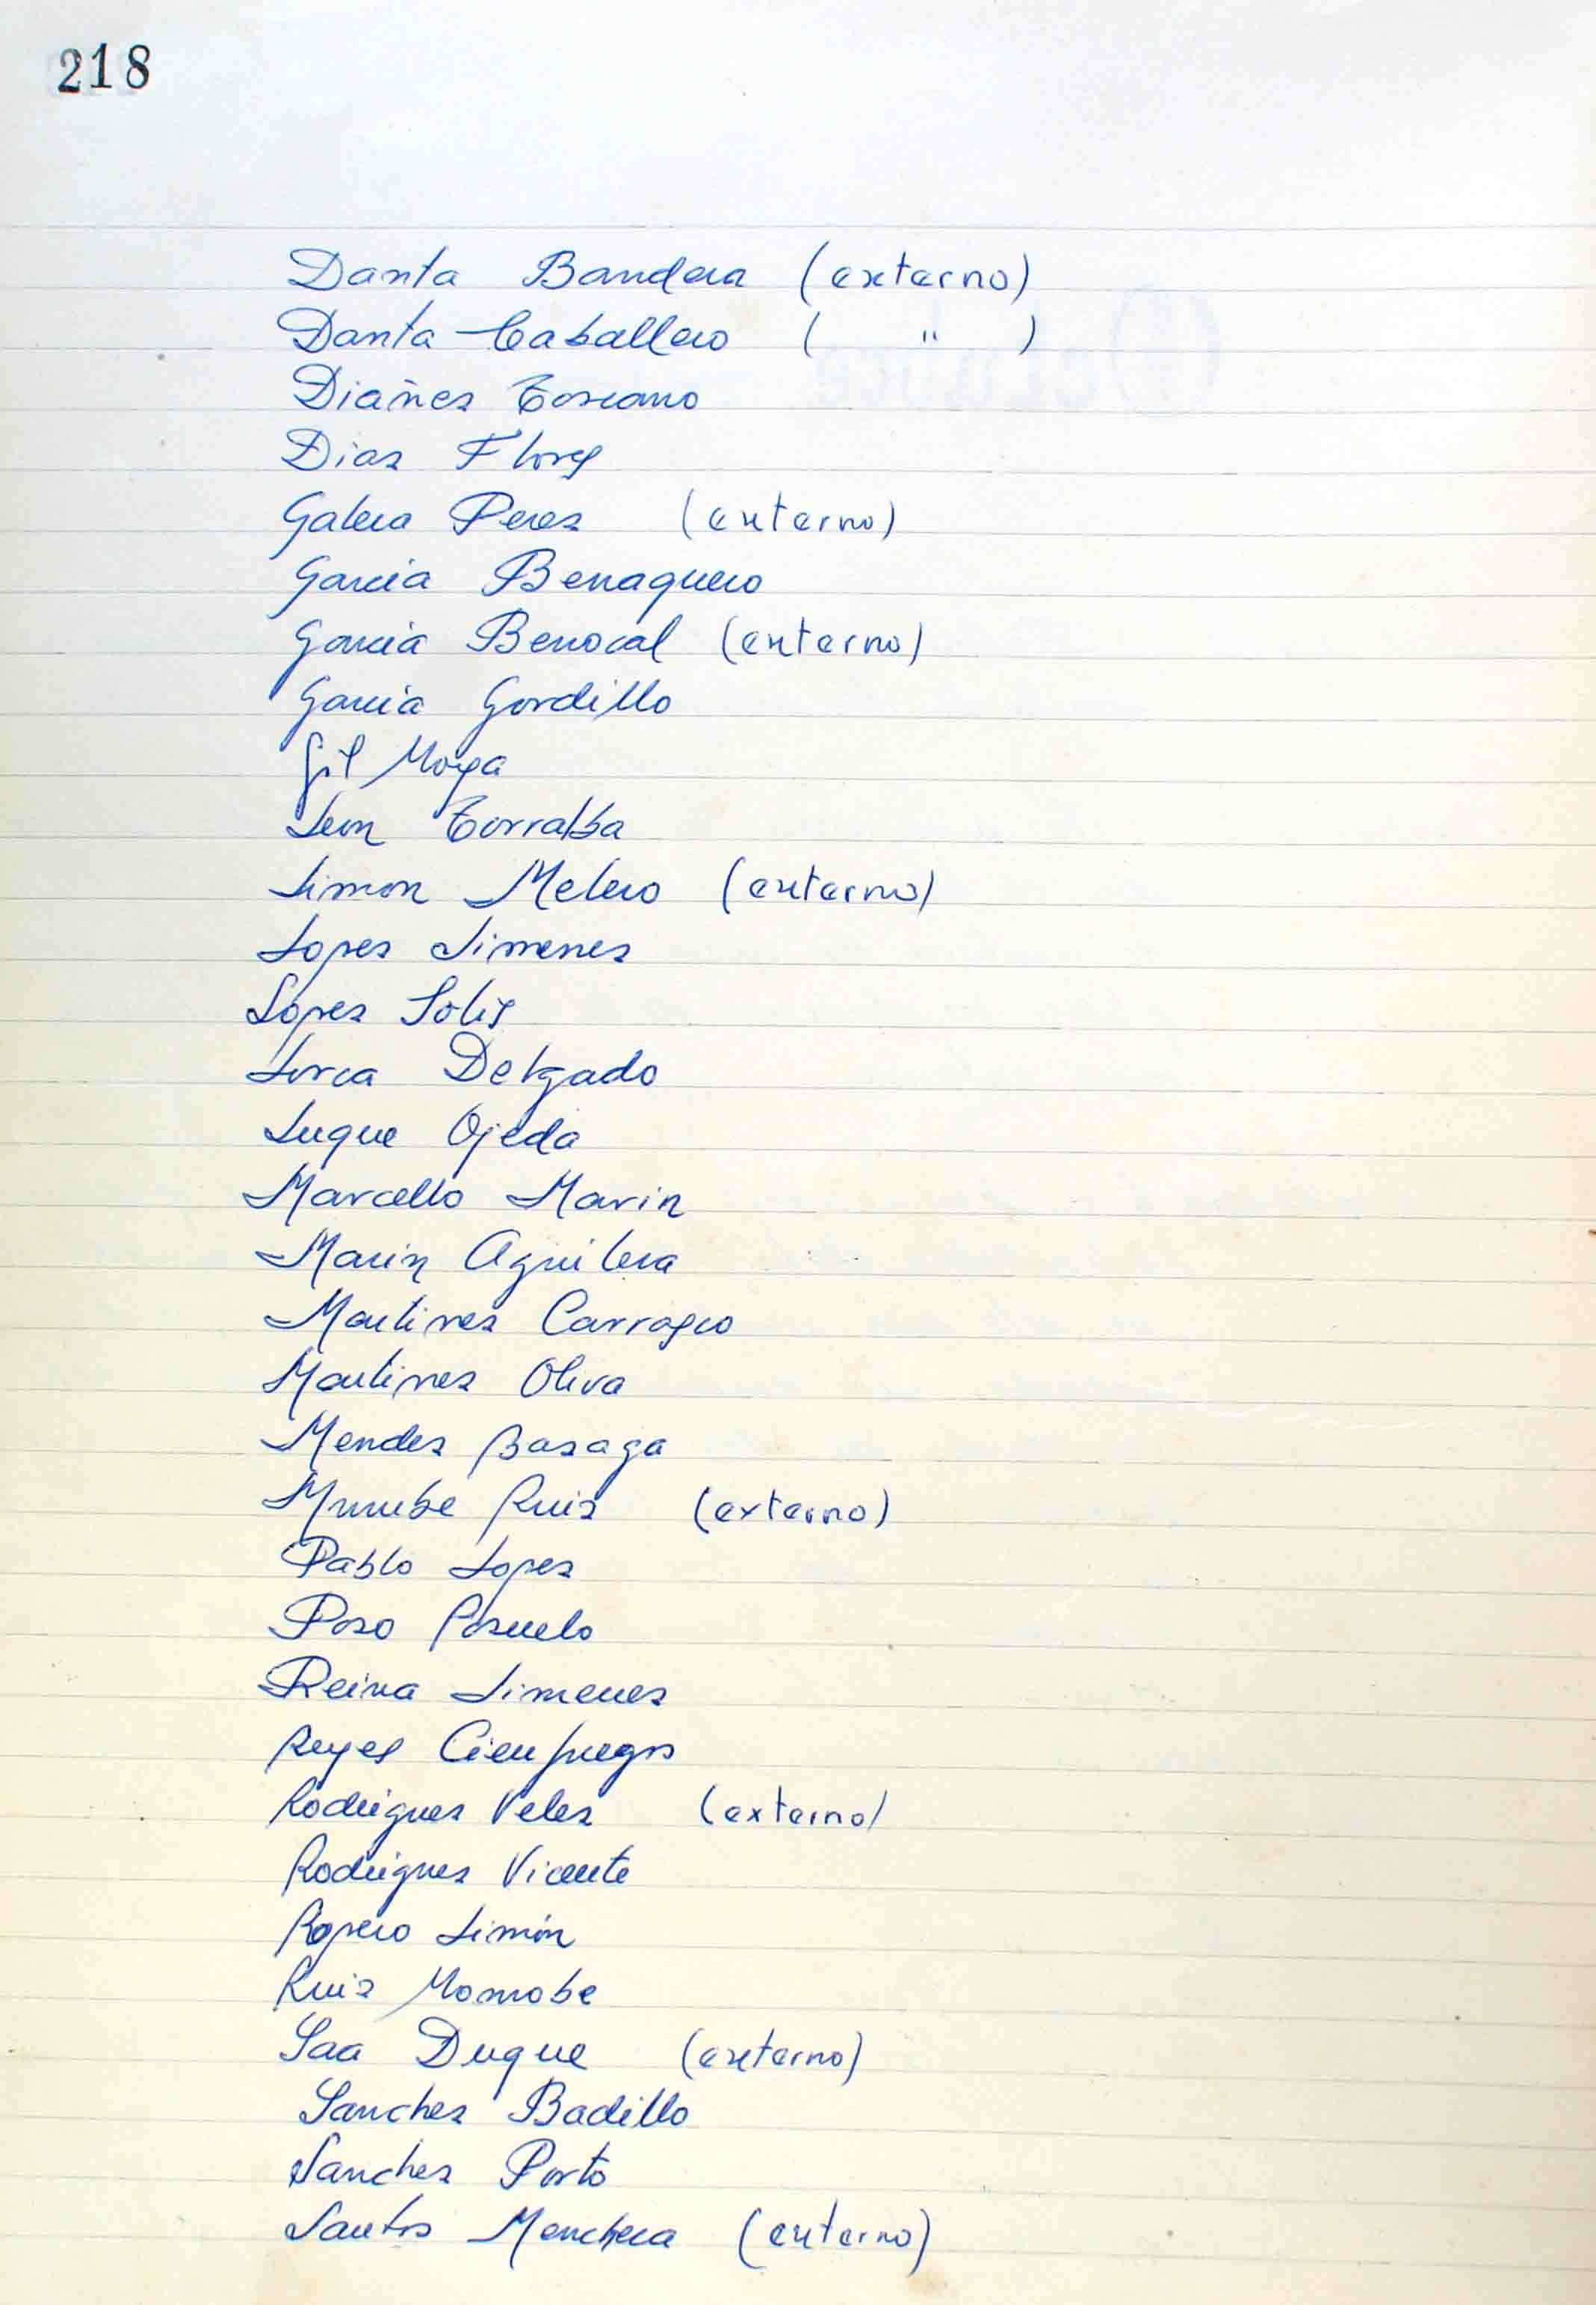 218
Danta Bandera (externo)
Danta Caballero ( " )
Diañez Toscano
Diaz Flores
Galera Perez (externo)
Garcia Benaquero
Garcia Berrocal (externo)
Garcia Gordillo
Gil Moya
Leon Torralba
Limon Melero (externo)
Lopez Jimenez
Lopez Solis
Lorca Delgado
Luque Ojeda
Marcello Marin
Marin Aguilera
Martinez Carrasco
Martinez Oliva
Mendez Basaga
Murube Ruiz (externo)
Pablo Lopez
Pozo Pozuelo
Reina Jimenez
Reyes Cienfuegos
Rodriguez Velez (externo)
Rodriguez Vicente
Ropero Limón
Ruiz Monrobe
Saa Duque (externo)
Sanchez Badillo
Sanchez Porto
Santos Menchera (externo)